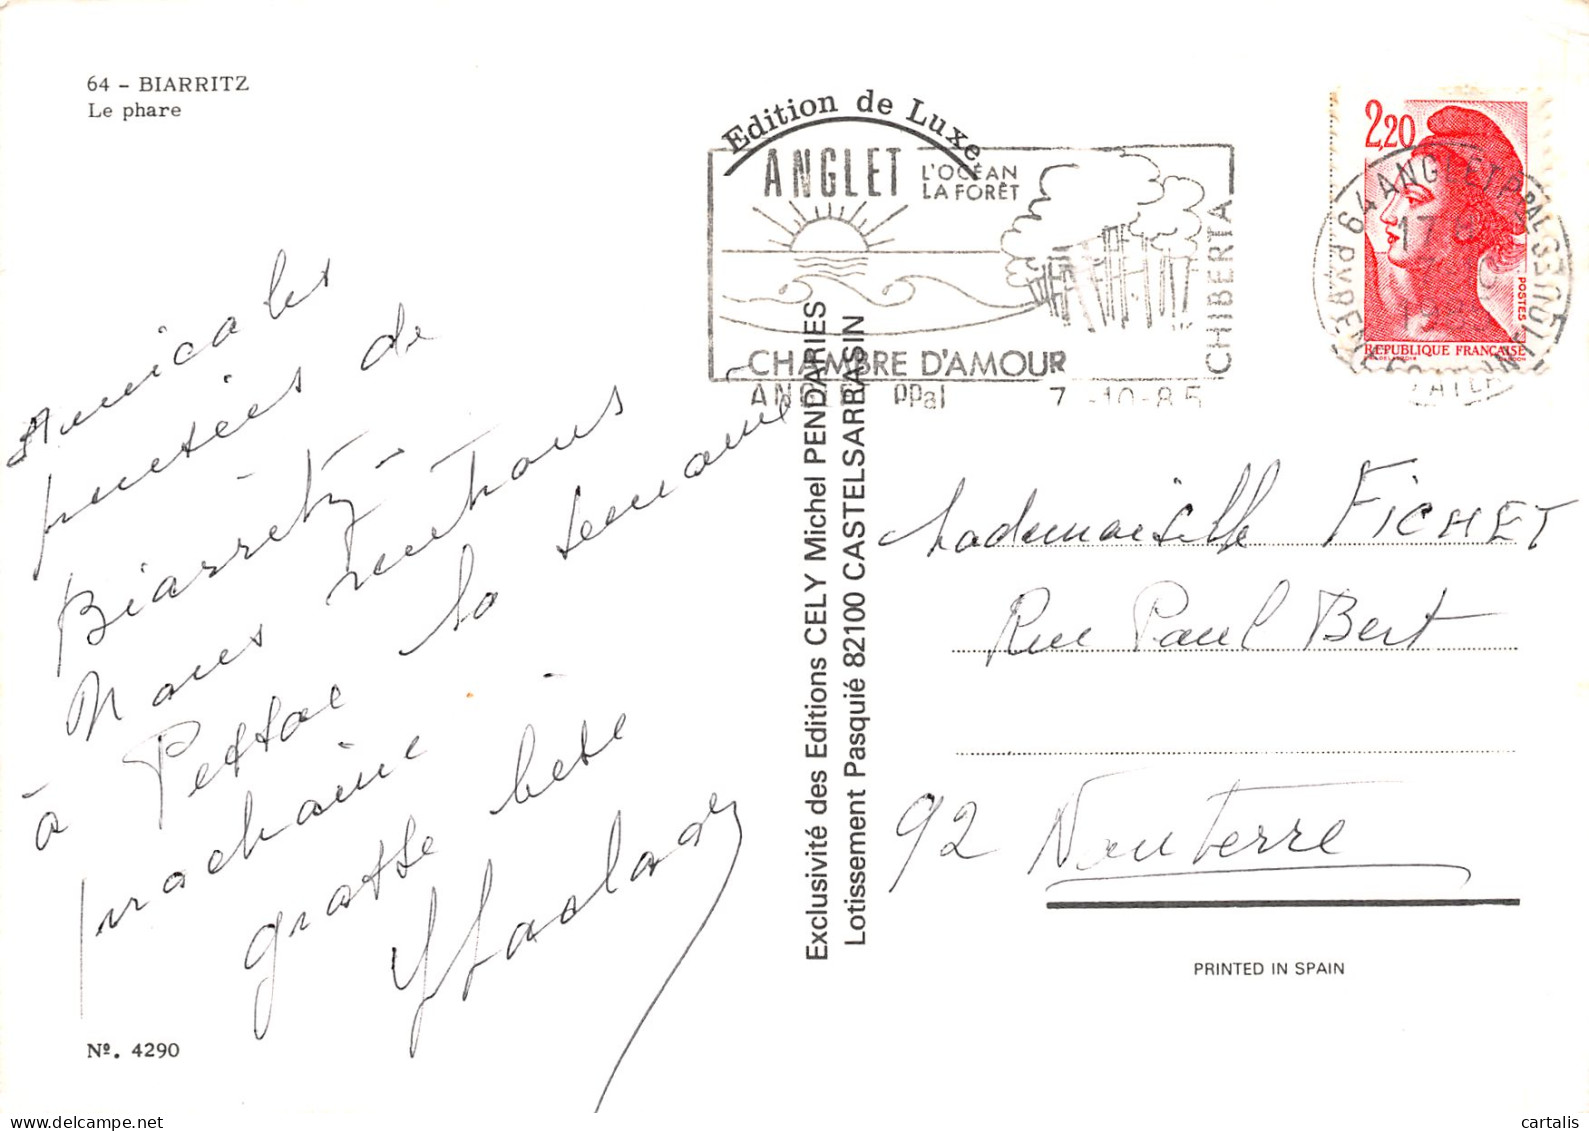 64 - BIARRITZ
Le phare
Edition de Luxe
ANGLET L'OCÉAN
LA FORÊT
CHIBERTA
CHAMBRE D'AMOUR
ANGLET PPal 7-10-85
2,20
POSTES
REPUBLIQUE FRANÇAISE
64 ANGLET PPAL
PYRENEES ATLANTIQUES
17H
7-10
1985
Amicales
pensées de
Biarritz -
Nous rentrons
à Pessac la semaine
prochaine.
grosse bise
Exclusivité des Editions CELY Michel PENDARIES
Lotissement Pasquié 82100 CASTELSARRASIN
Mademoiselle FICHET
Rue Paul Bert
92 Nanterre
PRINTED IN SPAIN
Nº. 4290
cartalis